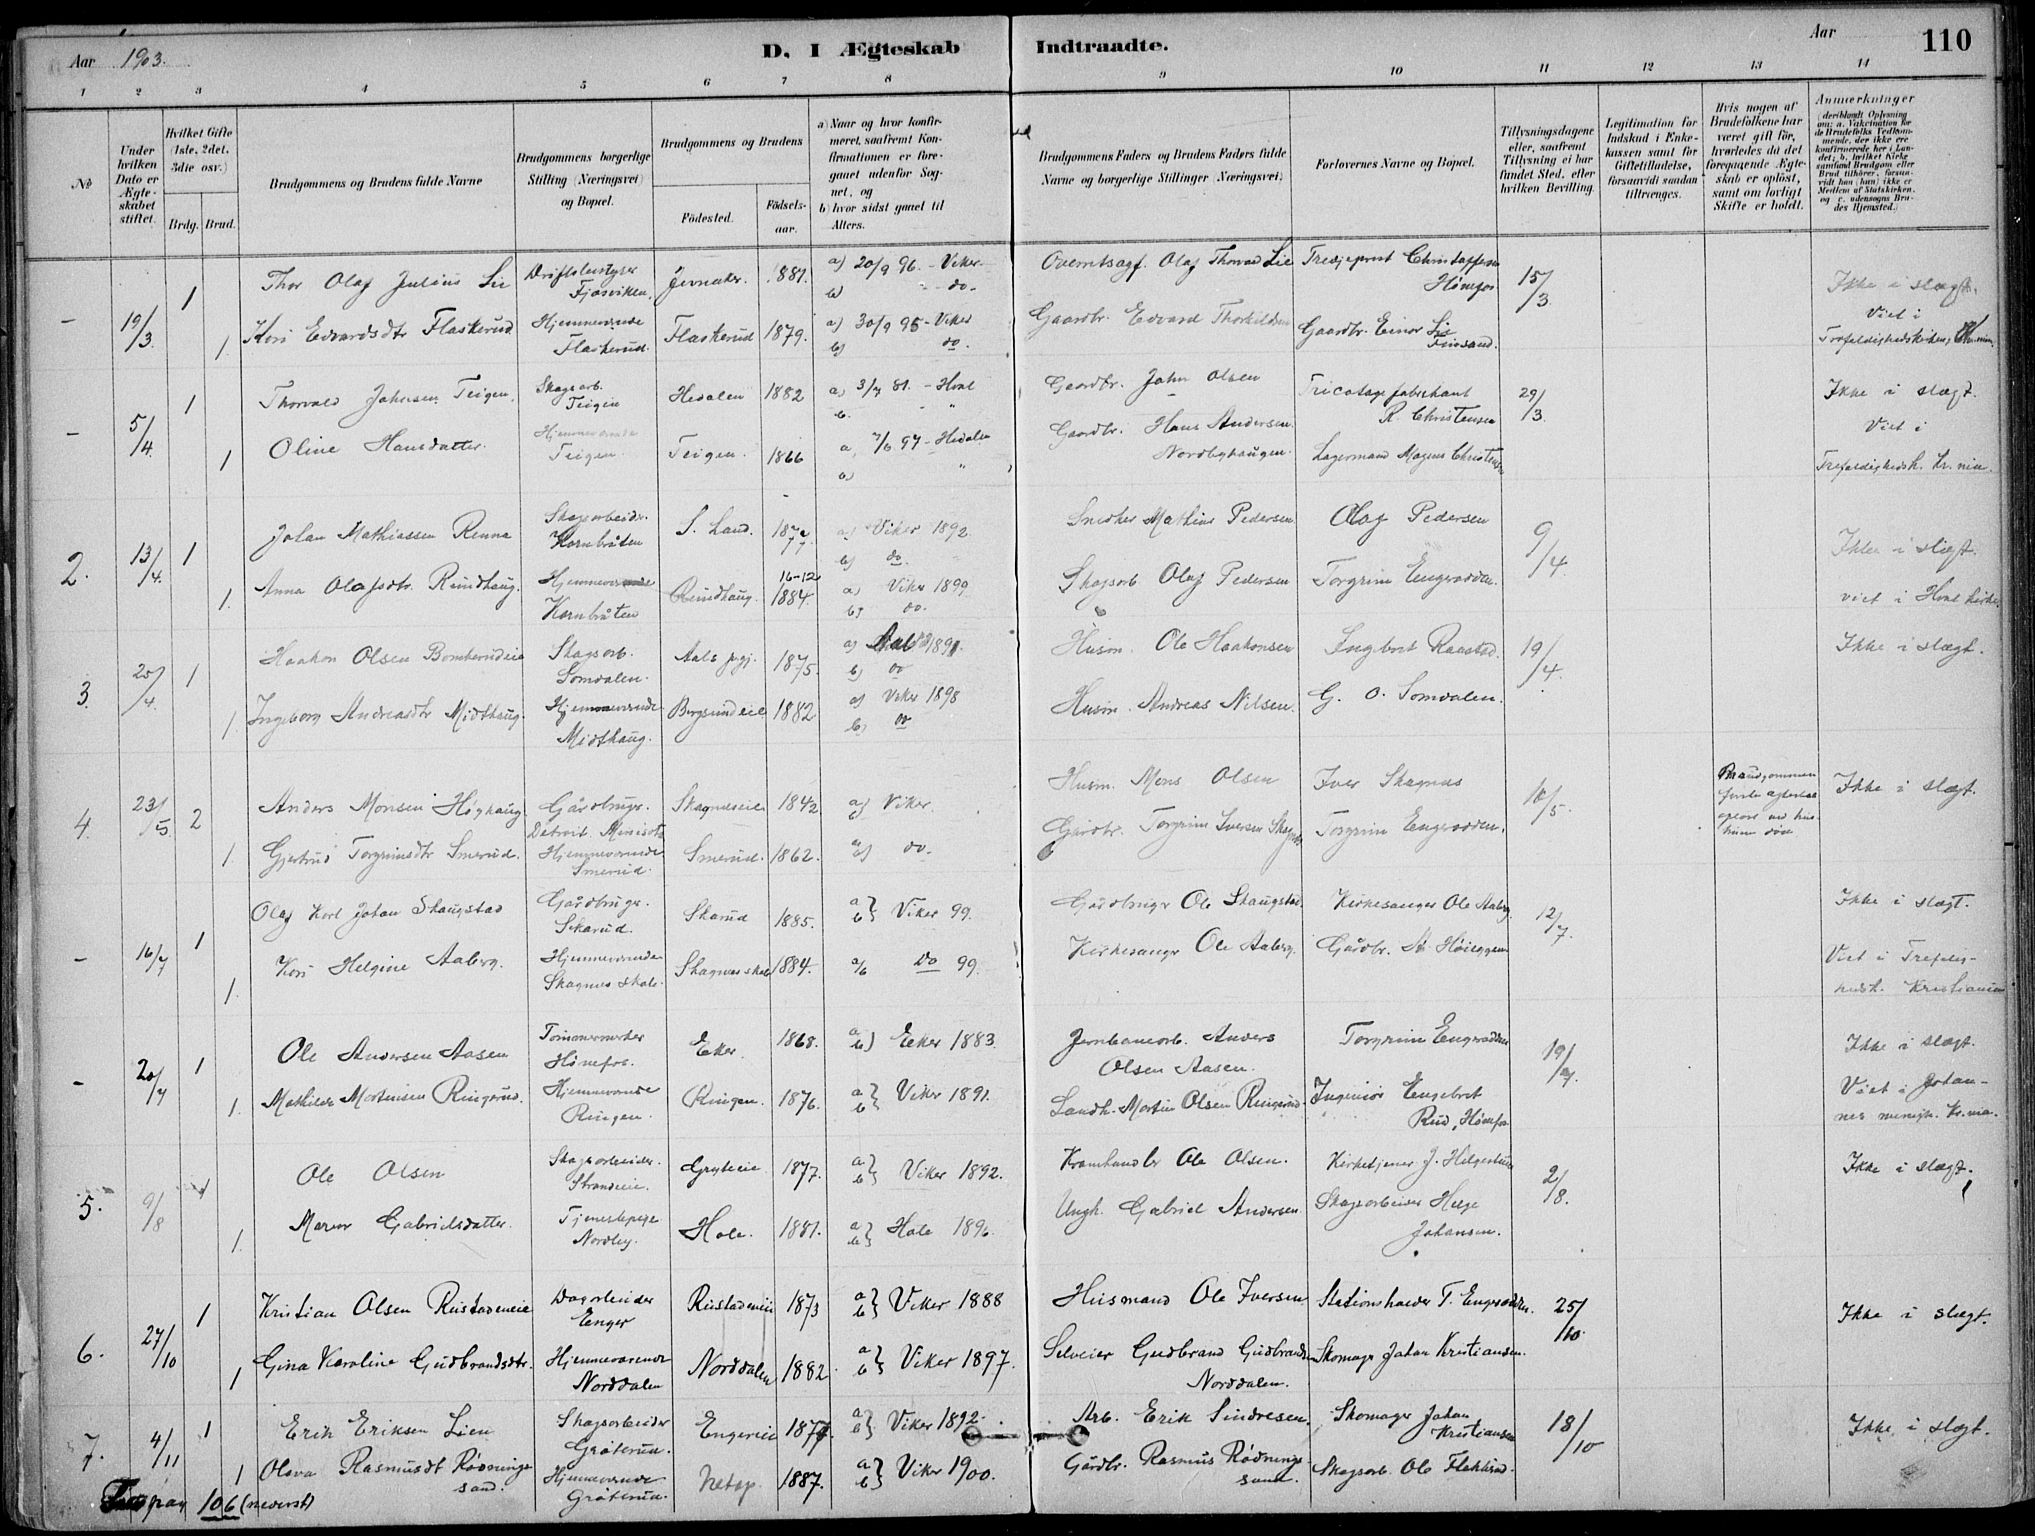 Aar 1903.
D. I Ægteskab Indtraadte.
Aar
110
1 2 3 4 5 6 7 8 9 10 11 12 13 14
No
Under hvilken Dato er Ægteskabet stiftet.
Hvilket Gifte (1ste, 2det, 3die osv.)
Brdg. Brud.
Brudgommens og Brudens fulde Navne
Brudgommens borgerlige Stilling (Næringsvei) og Bopæl.
Brudgommens og Brudens
Födested.
Födselsaar.
a) Naar og hvor konfirmeret, saafremt Konfirmationen er foregaaet udenfor Sognet, og
b) hvor sidst gaaet til Alters.
Brudgommens Faders og Brudens Faders fulde Navne og borgerlige Stillinger (Næringsvei)
Forlovernes Navne og Bopæl.
Tillysningsdagene eller, saafremt Tillysning ei har fundet Sted, efter hvilken Bevilling.
Legitimation for Indskud i Enkekassen samt for Giftetilladelse, forsaavidt saadan tiltrænges.
Hvis nogen af Brudefolkene har været gift för, hvorledes da det foregaaende Ægteskab er oplöst, samt om lovligt Skifte er holdt.
Anmærkninger
(deriblandt Oplysning om: a. Vakcination for de Brudefolks Vedkommende, der ikke ere konfirmerede her i Landet; b. hvilket Kirkesamfund Brudgom eller Brud tilhörer, forsaavidt han (hun) ikke er Medlem af Statskirken, og c. udensogns Brudes Hjemsted.)
- 19/3. 1 Thor Olaf Julius Lie Driftsbestyrer Fjøsviken Jevnaker. 1881. a) 20/9 96. - Viker. b) do. Olaf Thorvald Lie Christoffersen Hønefos 15/3. Ikke i slægt.
1. Kari Edvardsdtr Flaskerud Hjemmeværende Flaskerud. Flaskerud 1879. a) 30/9 95 - Viker b) do. Gaardbr. Edvard Thorkildsen Gaardbr. Einar Lie Finsand. Viet i Trefoldighedskirken,
- 5/4. 1 Thorvald Johnsen Teigen. Skogsarb. Teigen Hedalen 1882 a) 3/7 81. - Hval b. " Gaardbr. John Olsen Tricotagefabrikant R. Christensen 29/3. Ikke i slægt.
1 Oline Hansdatter. Hjemmeværende Teigen. Teigen. 1866 a, 7/6 97 - Hedalen " Gaardbr. Hans Andersen Nordbyhaugen. Lagermand Magnus Christensen Viet i Trefoldighedsk. Kr.nia.
2. 13/4. 1 Johan Mathiassen Renna Skogsarbeider. Kornbråten S. Land. 1877. a) Viker 1892 b) do. Snedker Mathias Pedersen Olaf Pedersen 9/4. Ikke i slægt.
1. Anna Olafsdtr. Rundhaug. Hjemmeværende Kornbråten Rundhaug. 16-12 1884. a) Viker 1899 b) do. Skogsarb Olaf Pedersen Torgrim Engerodden. viet i Hval kirke.
3. 25/4. 1 Haakon Olsen Skogsarb. Somdalen. Aals prgj. 1875. a) Aal 1891. b) do Husm. Ole Haakonsen Ingebret Raastad. 19/4. Ikke i slægt.
1. Ingeborg Andreasdtr Midthaug. Hjemmeværende Midthaug. Bergsundeie 1882 a) Viker 1898 b) do Husm. Andreas Nilsen. G. O. Somdalen.
4. 23/5. 2 Anders Monsen Høghaug. Gårdbruger. Detroit. Minisota Skagneseie 1842 a) b) Viker. Husm. Mons Olsen Iver Skagnes 10/5. Brudgommens første ægteskab opløst ved hustrues død Ikke i slægt.
1. Gjertrud Torgrimsdtr Smerud. Hjemmeværende Smerud. Smerud. 1862. a) b) do. Gårdbr. Torgrim Iversen Skagnes Torgrim Engerodden.
- 16/7 1 Olaf Karl Johan Skaugstad Gårdbruger. Skarud. Skarud 1885. a b} Viker 99. Gårdbruger Ole Skaugstad. Kirkesanger Ole Aaberg. 12/7. Ikke i slægt.
1. Kari Helgine Aaberg. Hjemmeværende Skagnes skole. Skagnes skole 1884. a/b do 99. Kirkesanger Ole Aaberg. Gårdbr. Viet i Trefoldighedsk. Kristiania
- 20/7 1 Ole Andersen Aasen Tømmermerker Hønefos. Eker. 1868. a b) Eker 1883. Jernbanearb. Anders Olsen Aasen. Torgrim Engerodden 19/7. Ikke i slægt.
1. Mathilde Mortensen Ringerud. Hjemmeværende Ringen. Ringen. 1876. a b} Viker 1891. Landh. Martin Olsen Ringerud. Ingeniør Engebret Rud, Hønefos Viet i Johannes menigh. Kr.nia.
5. 9/8 1 Ole Olsen Skogsarbeider. Strandeie. Gryteeie 1877. a b} Viker 1892. Kramhandler Ole Olsen. Kirketjener J. Helgerud 2/8. Ikke i slægt.
1. Maren Gabrielsdatter. Tjenestepige Nordby. Hole. 1881. a b} Hole 1896. Ungk. Gabriel Andersen Skogsarbeider Helge Johansen.
6. 27/10 1 Kristian Olsen Rustadeneie Dagarbeider Enger Rustadeneie 1873 a b} Viker 1888 Husmand Ole Iversen Stationsholder T. Engerodden. 25/10. Ikke i slægt.
1 Gina Karoline Gudbrandsdtr. Hjemmeværende Norddalen Norddalen 1882. a b} Viker 1897. Selveier Gudbrand Gudbrandsen Norddalen. Skomager Johan Kristiansen.
7. 4/11 1 Erik Eriksen Lien Skogsarbeider Gråterud. Engereie 1877. a b} Viker 1892. Arb. Erik Sindresen. Skomager Johan Kristiansen 18/10 Ikke i slægt.
1 Olava Rasmusdt Rødningsand. Hjemmeværende Gråterud. 1887. a b} Viker 1900. Gårdbr. Rasmus Rødningsand. Skogsarb. Ole Flaskerud.
pag 106 (nederst)